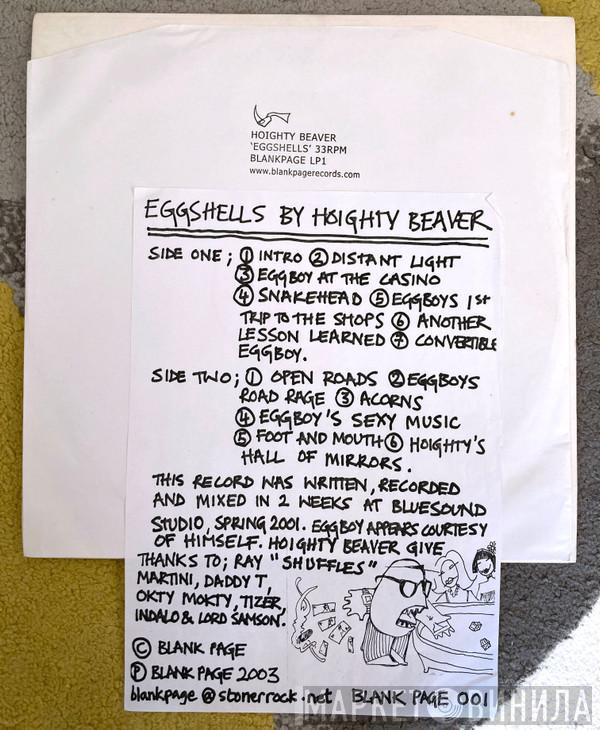 HOIGHTY BEAVER
'EGGSHELLS' 33RPM
BLANKPAGE LP1
www.blankpagerecords.com
EGGSHELLS BY HOIGHTY BEAVER
SIDE ONE; ① INTRO ② DISTANT LIGHT
③ EGGBOY AT THE CASINO
④ SNAKEHEAD ⑤ EGGBOYS 1st
TRIP TO THE SHOPS ⑥ ANOTHER
LESSON LEARNED ⑦ CONVERTIBLE
EGGBOY.
SIDE TWO; ① OPEN ROADS ② EGGBOYS
ROAD RAGE ③ ACORNS
④ EGGBOY'S SEXY MUSIC
⑤ FOOT AND MOUTH ⑥ HOIGHTY'S
HALL OF MIRRORS.
THIS RECORD WAS WRITTEN, RECORDED
AND MIXED IN 2 WEEKS AT BLUESOUND
STUDIO, SPRING 2001. EGGBOY APPEARS COURTESY
OF HIMSELF. HOIGHTY BEAVER GIVE
THANKS TO; RAY "SHUFFLES"
MARTINI, DADDY T,
OKTY MOKTY, TIZER,
INDALO & LORD SAMSON.
© BLANK PAGE
℗ BLANK PAGE 2003
blankpage@stonerrock.net BLANK PAGE 001
МАРКЕТ ВИНИЛА